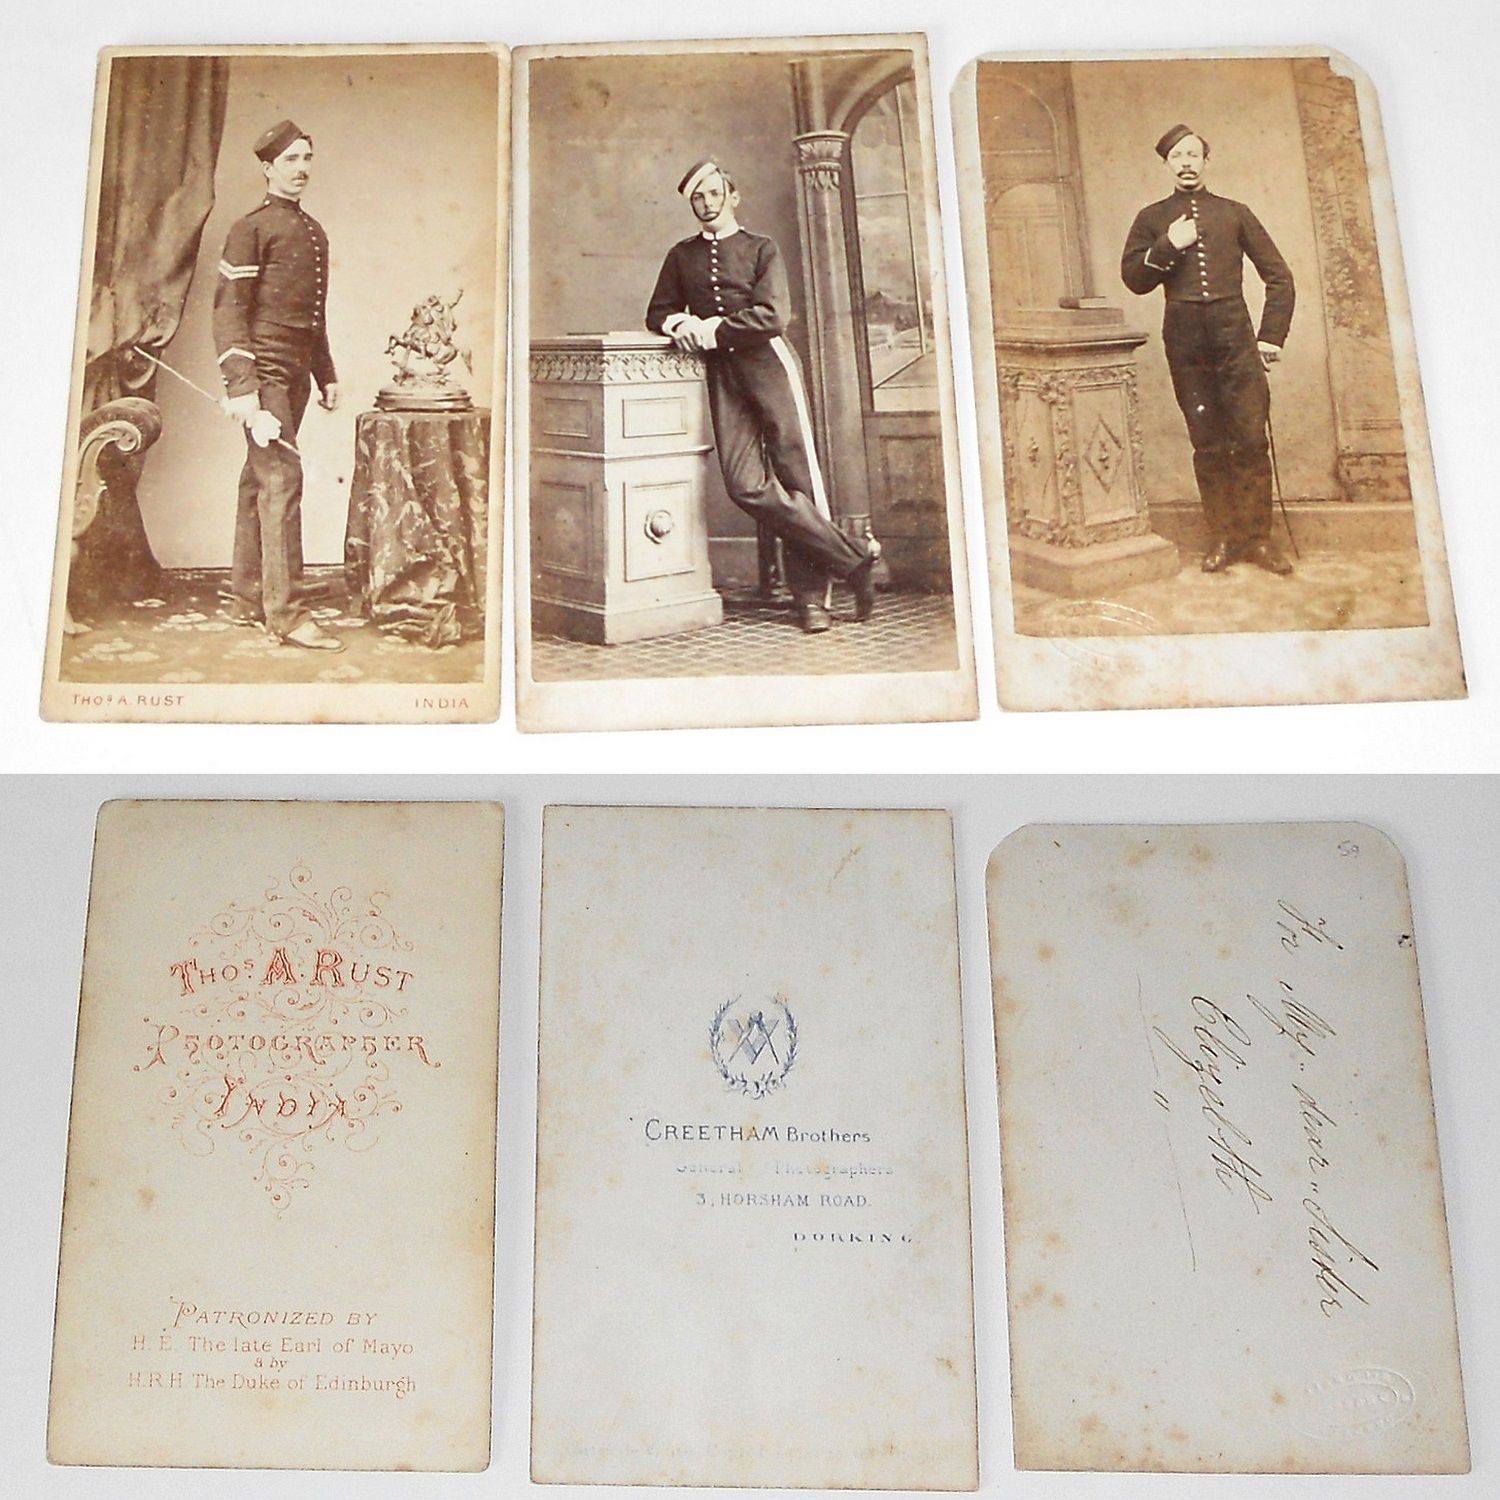 THOS A. RUST
INDIA
THOS. A. RUST
PHOTOGRAPHER
INDIA
PATRONIZED BY
H. E. The late Earl of Mayo
& by
H.R.H. The Duke of Edinburgh
CREETHAM Brothers
General Photographers
3, HORSHAM ROAD.
DORKING.
59
For My dear Sister
Elizebth